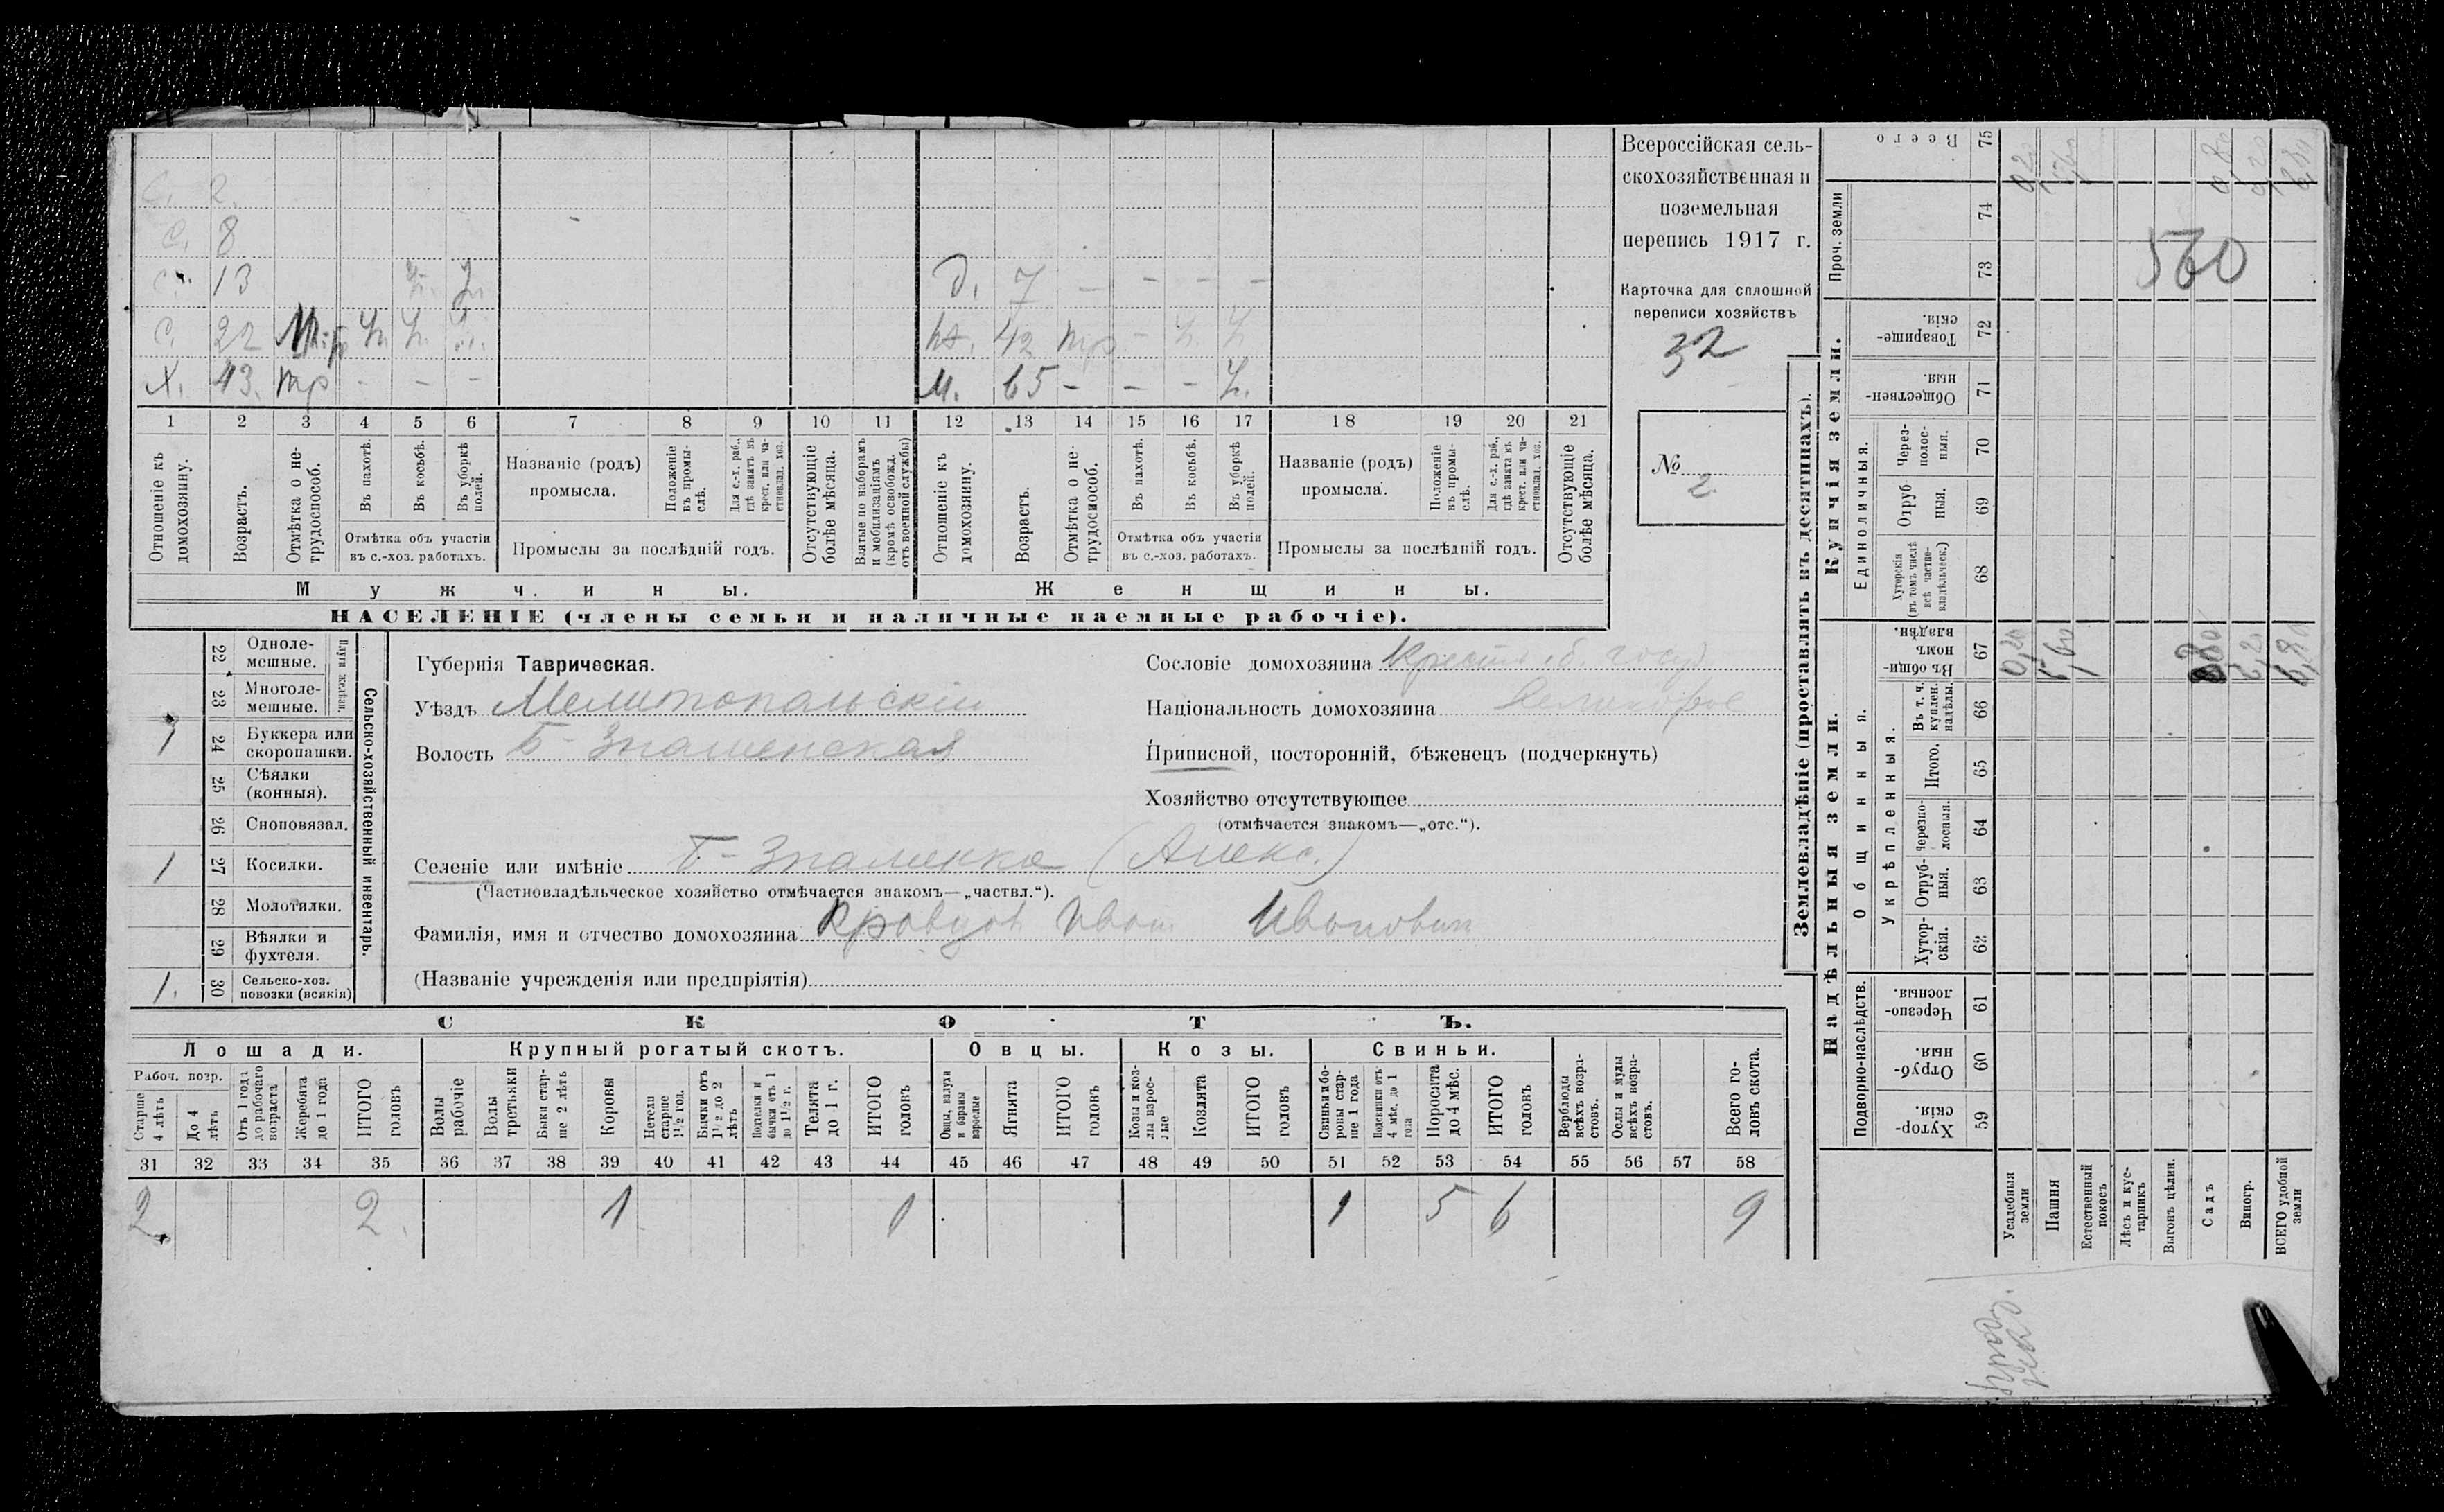 Всероссійская сель-
скохозяйственная и
поземельная
перепись 1917 г.
Карточка для сплошной
переписи хозяйствъ
32
№
2
С. 2.
С. 8
С. 13
С. 22
Х. 43. тр - - -
Д. 7 - - - -
42
М. 65 - - -
1 2 3 4 5 6 7 8 9 10 11 12 13 14 15 16 17 18 19 20 21
Отношеніе къ домохозяину.
Возрастъ.
Отмѣтка о не-
трудоспособ.
Въ пахотѣ.
Въ косьбѣ.
Въ уборкѣ полей.
Отмѣтка объ участіи
въ с.-хоз. работахъ.
Названіе (родъ)
промысла.
Положеніе въ промы-
слѣ.
Для с.-х. раб.,
гдѣ занятъ въ
крест. или ча-
стновлад. хоз.
Промыслы за послѣдній годъ.
Отсутствующіе
болѣе мѣсяца.
Взятые по наборамъ
и мобилизаціямъ
(кромѣ освобожд.
отъ военной службы)
Отношеніе къ
домохозяину.
Возрастъ.
Отмѣтка о не-
трудоспособ.
Въ пахотѣ.
Въ косьбѣ.
Въ уборкѣ
полей.
Отмѣтка объ участіи
въ с.-хоз. работахъ.
Названіе (родъ)
промысла.
Положеніе
въ промы-
слѣ.
Для с.-х. раб.,
гдѣ занята въ
крест. или ча-
стновлад. хоз.
Промыслы за послѣдній годъ.
Отсутствующіе
болѣе мѣсяца.
Мужчины.
Женщины.
НАСЕЛЕНІЕ (члены семьи и наличные наемные рабочіе).
Сельско-хозяйственный инвентарь.
Плуги желѣзн.
22 Одноле-
мешные.
23 Многоле-
мешные.
1 24 Буккера или
скоропашки.
25 Сѣялки
(конныя).
26 Сноповязал.
1 27 Косилки.
28 Молотилки.
29 Вѣялки и
фухтеля.
1. 30 Сельско-хоз.
повозки (всякія)
Губернія Таврическая.
Уѣздъ Мелитопольскій
Волость Б-Знаменская
Селеніе или имѣніе Б-Знаменка (Алекс.)
(Частновладѣльческое хозяйство отмѣчается знакомъ—„частвл.“).
Фамилія, имя и отчество домохозяина Кравцов Иван Иванович
(Названіе учрежденія или предпріятія)
Сословіе домохозяина Крест. б. госуд
Національность домохозяина Великорос
Приписной, посторонній, бѣженецъ (подчеркнуть)
Хозяйство отсутствующее
(отмѣчается знакомъ—„отс.“).
СКОТЪ.
Лошади. Крупный рогатый скотъ. Овцы. Козы. Свиньи.
Рабоч. возр.
Старше
4 лѣтъ
До 4
лѣтъ
Отъ 1 года
до рабочаго
возраста
Жеребята
до 1 года
ИТОГО
головъ
Волы
рабочіе
Волы
третьяки
Быки стар-
ше 2 лѣтъ
Коровы
Нетели
старше
1½ год.
Бычки отъ
1½ до 2
лѣтъ
Подтелки и
бычки отъ 1
до 1½ г.
Телята
до 1 г.
ИТОГО
головъ
Овцы, валухи
и бараны
взрослые
Ягнята
ИТОГО
головъ
Козы и коз-
лы взрос-
лые
Козлята
ИТОГО
головъ
Свиньи и бо-
ровы стар-
ше 1 года
Подсвинки отъ
4 мѣс. до 1
года
Поросята
до 4 мѣс.
ИТОГО
головъ
Верблюды
всѣхъ возра-
стовъ.
Ослы и мулы
всѣхъ возра-
стовъ.
Всего го-
ловъ скота.
31 32 33 34 35 36 37 38 39 40 41 42 43 44 45 46 47 48 49 50 51 52 53 54 55 56 57 58
2 2 1 1 1 5 6 9
Землевладѣніе (проставлять въ десятинахъ).
Купчія земли.
Надѣльныя земли.
Всего 75
Проч. земли
74
73
Товарище-
скія. 72
Обществен-
ныя. 71
Единоличныя.
Через-
полос-
ныя. 70
Отруб
ныя. 69
Хуторскія
(въ томъ числѣ
всѣ частно-
владѣльческ.) 68
Общинныя.
Въ общи-
номъ
владѣн. 67
Укрѣпленныя.
Въ т. ч.
куплен.
надѣлы. 66
Итого. 65
Черезпо-
лосныя. 64
Отруб-
ныя. 63
Хутор-
скія. 62
Подворно-наслѣдств.
Черезпо-
лосныя. 61
Отруб-
ныя. 60
Хутор-
скія. 59
Усадебныя
земли
Пашня
Естественный
покосъ
Лѣсъ и кус-
тарникъ
Выгонъ цѣлин.
Садъ
Виногр.
ВСЕГО удобной
земли
560
0,20